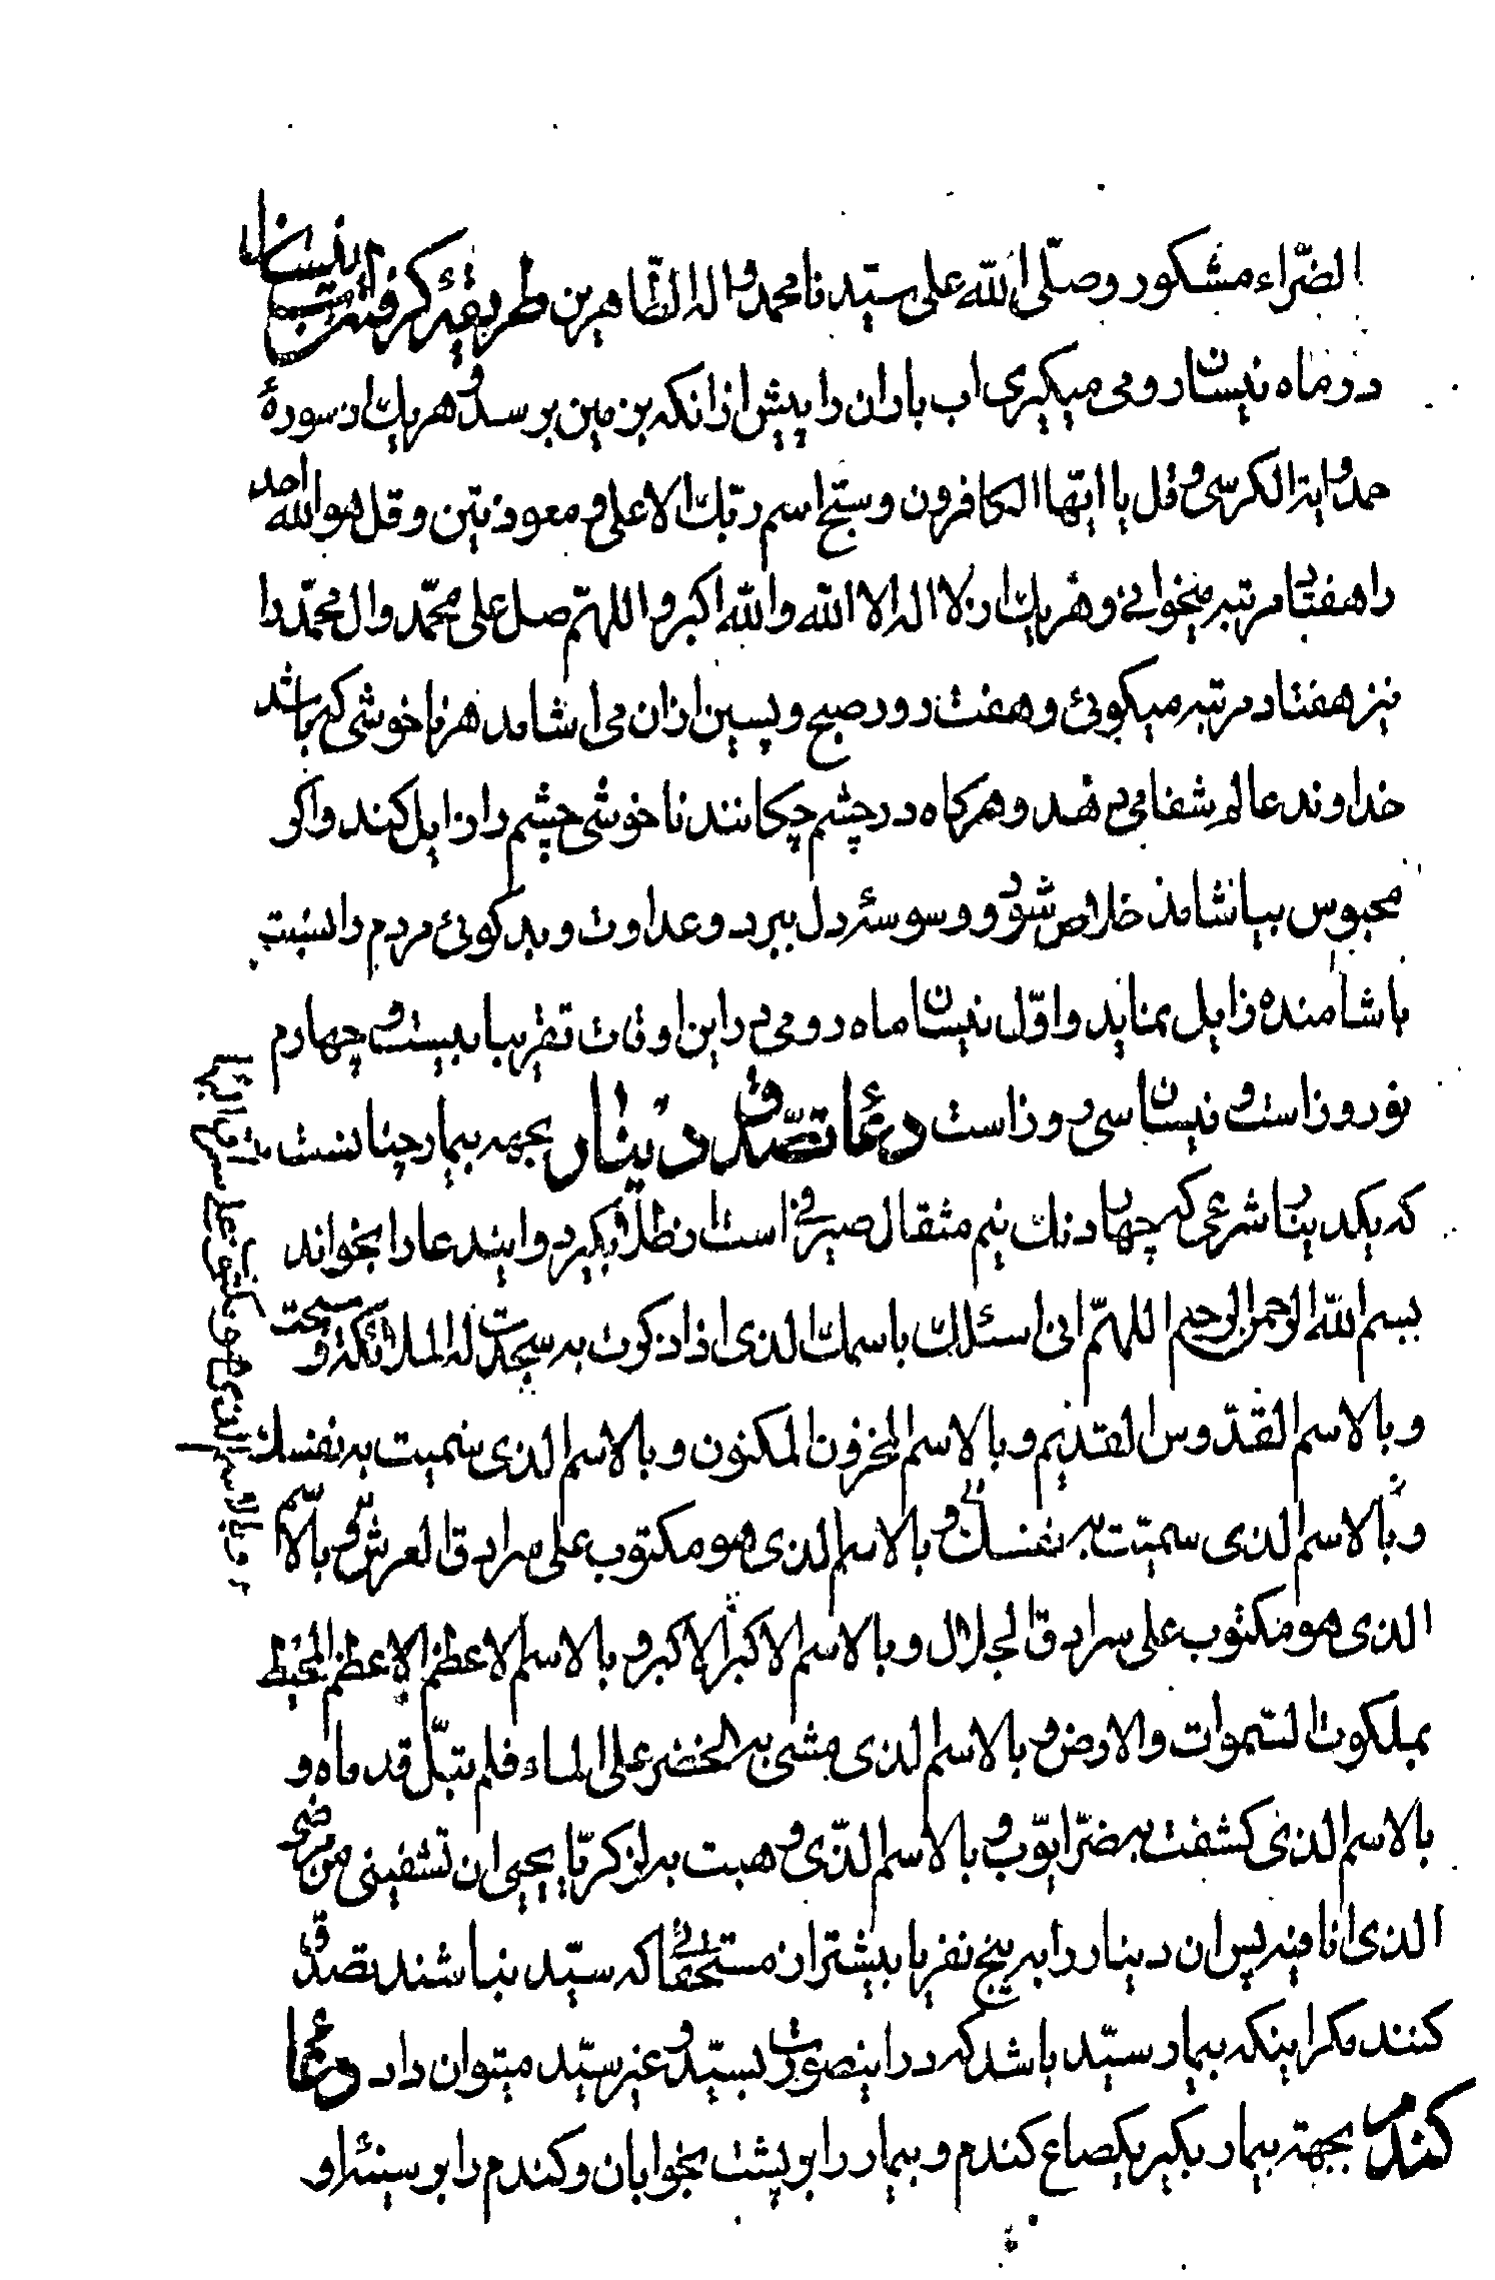 الضّراء مشكور وصلّى الله على سيّدنا محمد واله الطّاهرين طريقهٔ كرفتن اب نيسان
در ماه نيسان رومى ميكيرى اب باران را پيش ازانكه بزمين برسد و هر يك از سورهٔ
حمد و اية الكرسى و قل يا ايّها الكافرون و سبّح اسم ربّك الاعلى و معوذتين و قل هو الله احد
را هفتاد مرتبه ميخوانى و هر يك از لا اله الا الله والله اكبر و اللهمّ صل على محمّد وال محمّد را
نيز هفتاد مرتبه ميكوئى و هفت روز صبح و پسين ازان مى اشامد هر ناخوشى كه باشد
خداوند عالم شفا مى دهد و هركاه در چشم چكانند ناخوشى چشم را زايل كند و اكر
محبوس بياشامد خلاص شود و وسوسهٔ دل ببرد و عداوت و بدكوئى مردم را نسبت
باشامنده زايل نمايد و اوّل نيسان ماه رومى در اين اوقات تقريبا بيست و چهارم
نوروز است و نيسان سى روز است دعاء تصدّق دينار بجهه بيمار چنانست
كه يكدينار شرعى كه چهار دنك نيم مثقال صيرفى است از طلا بكيرد و ايندعا را بخواند
بسم الله الرحمن الرحيم اللهمّ انى اسئلك باسمك الذى اذا ذكرت به سجدت له الملائكة و سبّحت
و بالاسم القدّوس القديم و بالاسم المخزون المكنون و بالاسم الذى سميت به نفسك
و بالاسم الذى سميّت به نفسك و بالاسم الذى هو مكتوب على سرادق العرش و بالاسم
الذى هو مكتوب على سرادق الجلال و بالاسم الاكبر الاكبر و بالاسم الاعظم الاعظم المحيط
بملكوت السّموات والارض و بالاسم الذى مشى به الخضر على الماء فلم تبتلّ قدماه و
بالاسم الذى كشفت به ضرّ ايّوب و بالاسم الذّى وهبت به لزكريّا يحيى ان تشفينى من مرضى
الذى انا فيه پس ان دينار را به پنج نفر يا بيشتر از مستحقّانى كه سيّد نباشند تصدّق
كنند مكر اينكه بيمار سيّد باشد كه در اينصورت بسيّد و غير سيّد ميتوان داد دعاء
كندم بجهة بيمار بكير يكصاع كندم و بيمار را بر پشت بخوابان و كندم را بر سينهٔ او
و بالاسم الذى هو مكتوب على سرادق البهاء